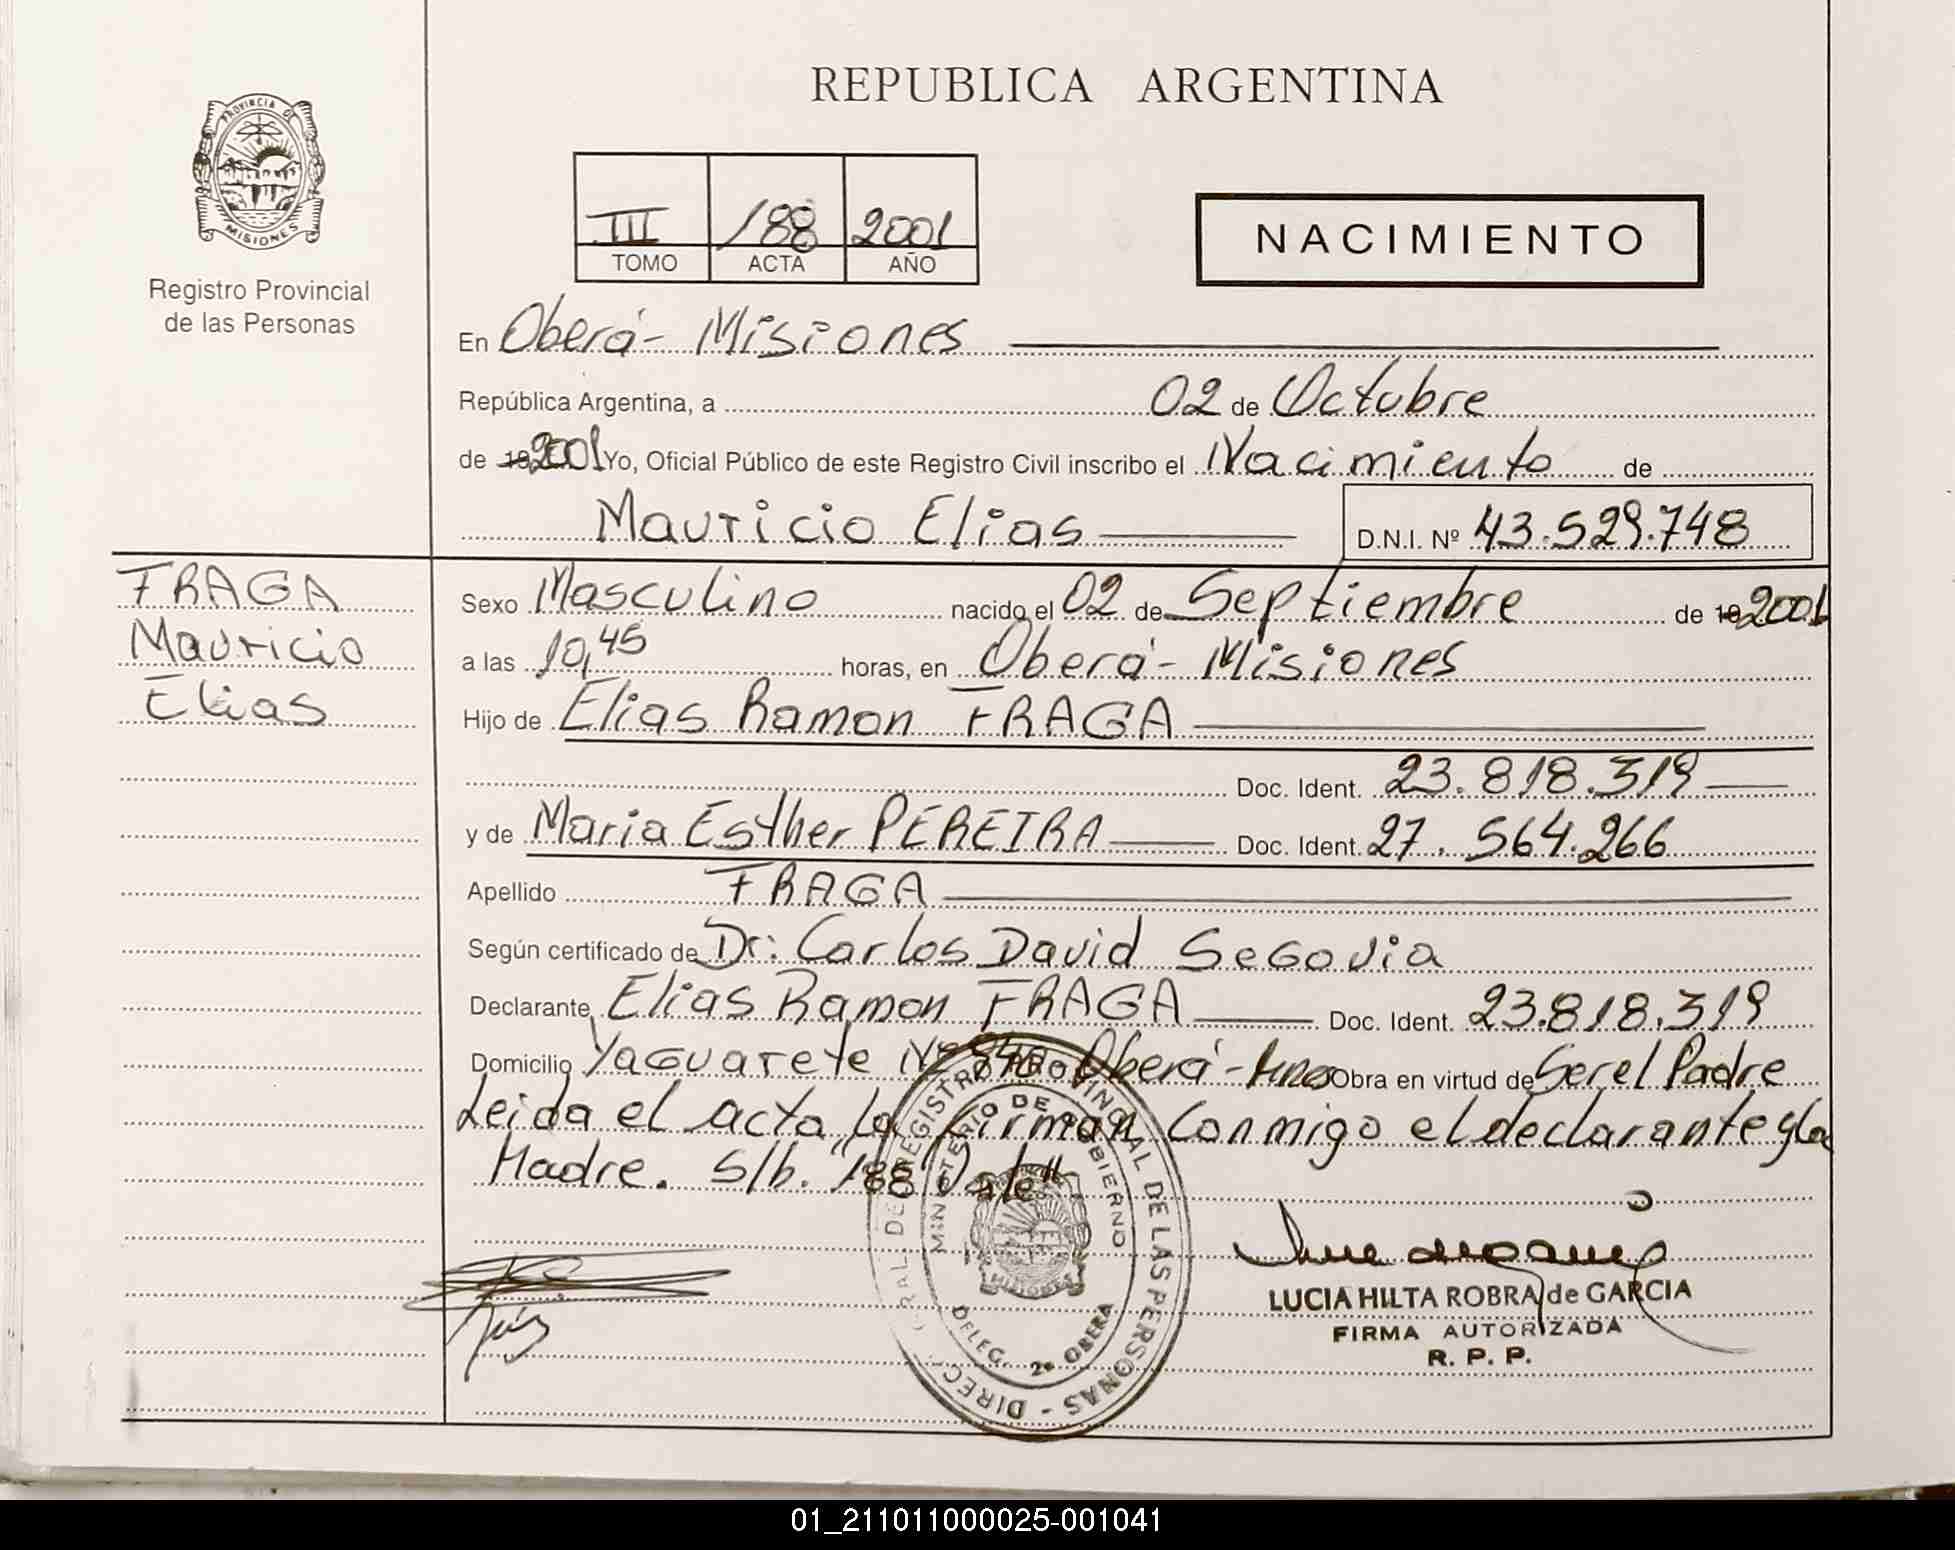 REPUBLICA ARGENTINA
PROVINCIA DE
MISIONES
Registro Provincial
de las Personas
III 188 2001
TOMO ACTA AÑO
NACIMIENTO
En Oberá - Misiones
República Argentina, a 02 de Octubre
de 19 2001 Yo, Oficial Público de este Registro Civil inscribo el Nacimiento de
Mauricio Elias D.N.I. Nº 43.529.748
FRAGA
Mauricio
Elias
Sexo Masculino nacido el 02 de Septiembre de 19 2001
a las 10,45 horas, en Oberá - Misiones
Hijo de Elias Ramon FRAGA
Doc. Ident. 23.818.319
y de Maria Esther PEREIRA Doc. Ident. 27.564.266
Apellido FRAGA
Según certificado de Dr. Carlos David Segovia
Declarante Elias Ramon FRAGA Doc. Ident. 23.818.319
Domicilio Yaguarete Nº Oberá - Mnes Obra en virtud de Ser el Padre
Leida el acta la firman conmigo el declarante y la
Madre. S/b. "188 Vale"
DIREC. GRAL. DE REGISTRO PROVINCIAL DE LAS PERSONAS -
MINISTERIO DE GOBIERNO
MISIONES
DELEG. 2º OBERA
LUCIA HILTA ROBRA de GARCIA
FIRMA AUTORIZADA
R. P. P.
01_211011000025-001041